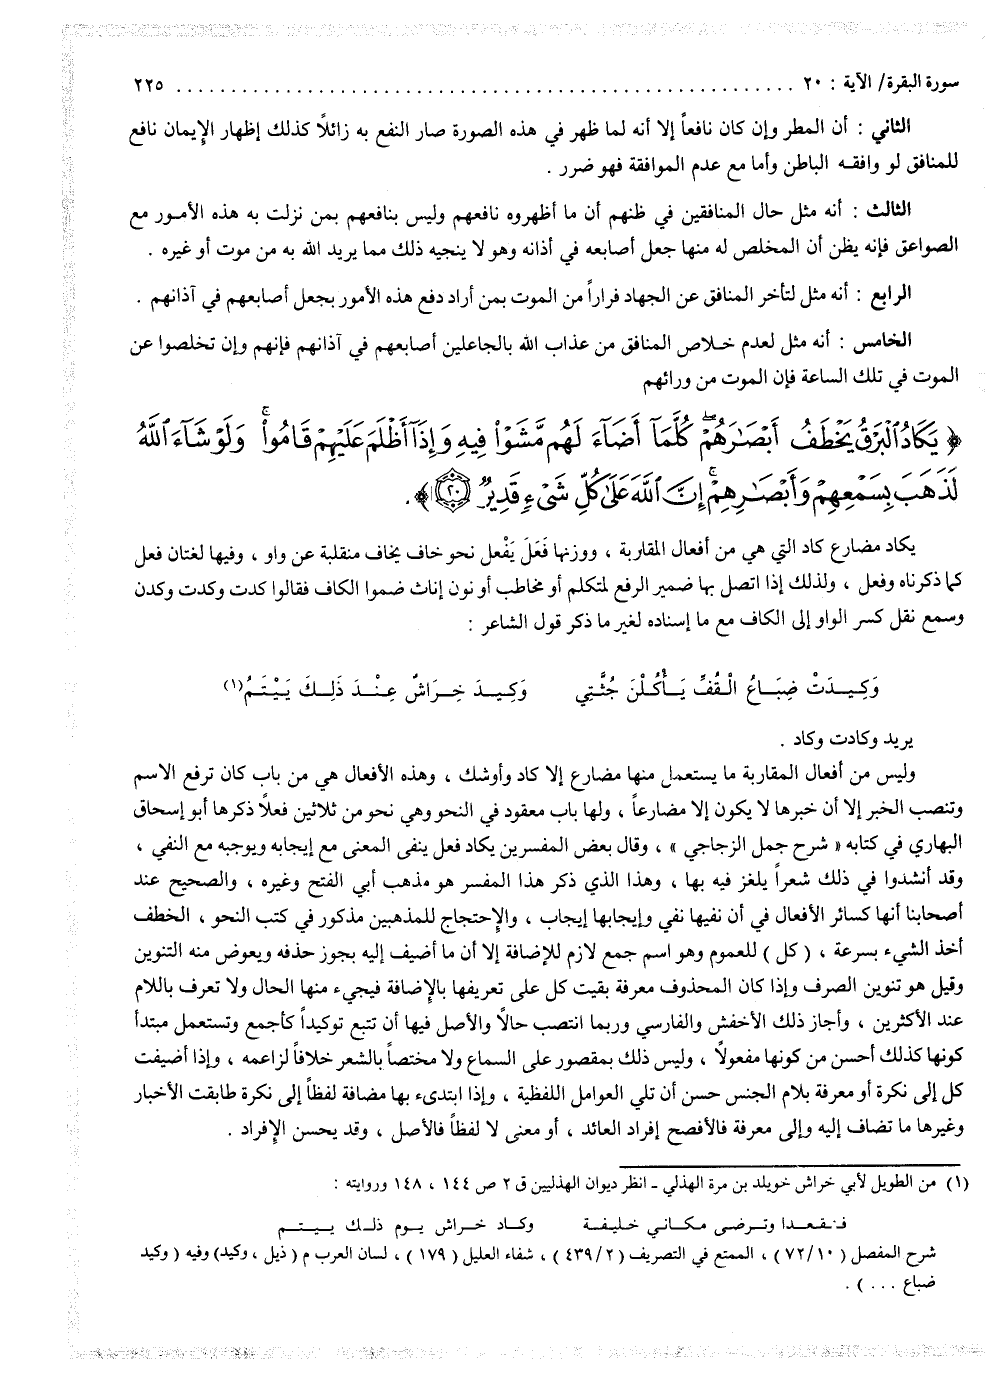 سورة البقرة/ الآية : ٢٠ ................................................ ٢٢٥
الثاني : أن المطر وإن كان نافعاً إلا أنه لما ظهر في هذه الصورة صار النفع به زائلاً كذلك إظهار الإيمان نافع
للمنافق لو وافقه الباطن وأما مع عدم الموافقة فهو ضرر .
الثالث : أنه مثل حال المنافقين في ظنهم أن ما أظهروه نافعهم وليس بنافعهم بمن نزلت به هذه الأمور مع
الصواعق فإنه يظن أن المخلص له منها جعل أصابعه في أذانه وهو لا ينجيه ذلك مما يريد الله به من موت أو غيره .
الرابع : أنه مثل لتأخر المنافق عن الجهاد فراراً من الموت بمن أراد دفع هذه الأمور بجعل أصابعهم في آذانهم .
الخامس : أنه مثل لعدم خلاص المنافق من عذاب الله بالجاعلين أصابعهم في آذانهم فإنهم وإن تخلصوا عن
الموت في تلك الساعة فإن الموت من ورائهم
﴿ يَكَادُ ٱلْبَرْقُ يَخْطَفُ أَبْصَٰرَهُمْ ۖ كُلَّمَآ أَضَآءَ لَهُم مَّشَوْا۟ فِيهِ وَإِذَآ أَظْلَمَ عَلَيْهِمْ قَامُوا۟ ۚ وَلَوْ شَآءَ ٱللَّهُ
لَذَهَبَ بِسَمْعِهِمْ وَأَبْصَٰرِهِمْ ۚ إِنَّ ٱللَّهَ عَلَىٰ كُلِّ شَىْءٍ قَدِيرٌ ٢٠ ﴾ .
يكاد مضارع كاد التي هي من أفعال المقاربة ، ووزنها فَعَلَ يَفْعل نحو خاف يخاف منقلبة عن واو ، وفيها لغتان فعل
كما ذكرناه وفعل ، ولذلك إذا اتصل بها ضمير الرفع لمتكلم أو مخاطب أو نون إناث ضموا الكاف فقالوا كدت وكدت وكدن
وسمع نقل كسر الواو إلى الكاف مع ما إسناده لغير ما ذكر قول الشاعر :
وَكِيدَتْ ضِبَاعُ الْقُفِّ يَأْكُلْنَ جُثَّتِي وَكِيدَ خِرَاشٌ عِنْدَ ذَلِكَ يَيْتَمُ(١)
يريد وكادت وكاد .
وليس من أفعال المقاربة ما يستعمل منها مضارع إلا كاد وأوشك ، وهذه الأفعال هي من باب كان ترفع الاسم
وتنصب الخبر إلا أن خبرها لا يكون إلا مضارعاً ، ولها باب معقود في النحو وهي نحو من ثلاثين فعلاً ذكرها أبو إسحاق
البهاري في كتابه « شرح جمل الزجاجي » ، وقال بعض المفسرين يكاد فعل ينفى المعنى مع إيجابه ويوجبه مع النفي ،
وقد أنشدوا في ذلك شعراً يلغز فيه بها ، وهذا الذي ذكر هذا المفسر هو مذهب أبي الفتح وغيره ، والصحيح عند
أصحابنا أنها كسائر الأفعال في أن نفيها نفي وإيجابها إيجاب ، والإحتجاج للمذهبين مذكور في كتب النحو ، الخطف
أخذ الشيء بسرعة ، ( كل ) للعموم وهو اسم جمع لازم للإضافة إلا أن ما أضيف إليه يجوز حذفه ويعوض منه التنوين
وقيل هو تنوين الصرف وإذا كان المحذوف معرفة بقيت كل على تعريفها بالإضافة فيجيء منها الحال ولا تعرف باللام
عند الأكثرين ، وأجاز ذلك الأخفش والفارسي وربما انتصب حالاً والأصل فيها أن تتبع توكيداً كأجمع وتستعمل مبتدأ
كونها كذلك أحسن من كونها مفعولاً ، وليس ذلك بمقصور على السماع ولا مختصاً بالشعر خلافاً لزاعمه ، وإذا أضيفت
كل إلى نكرة أو معرفة بلام الجنس حسن أن تلي العوامل اللفظية ، وإذا ابتدىء بها مضافة لفظاً إلى نكرة طابقت الأخبار
وغيرها ما تضاف إليه وإلى معرفة فالأفصح إفراد العائد ، أو معنى لا لفظاً فالأصل ، وقد يحسن الإفراد .
(١) من الطويل لأبي خراش خويلد بن مرة الهذلي ـ انظر ديوان الهذليين ق ٢ ص ١٤٤ ، ١٤٨ وروايته :
فنقعدا وترضى مكاني خليفة وكاد خراش يوم ذلك ييتم
شرح المفصل ( ٧٢/١٠ ) ، الممتع في التصريف ( ٤٣٩/٢ ) ، شفاء العليل ( ١٧٩ ) ، لسان العرب م ( ذيل ، وكيد) وفيه ( وكيد
ضباع ... ) .